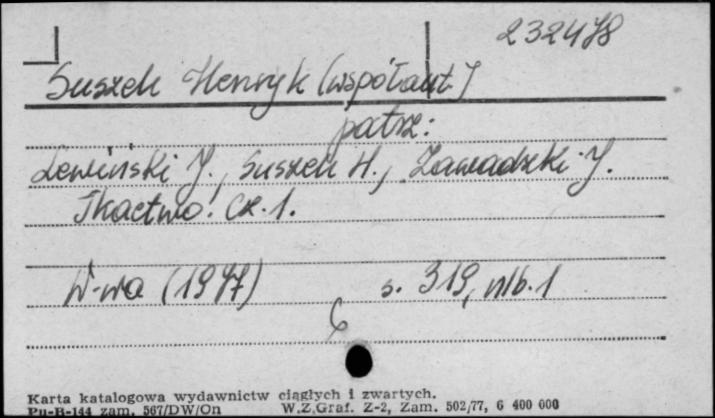 232478
Suszek Henryk (współaut.)
patrz:
Lewiński J., Suszek H., Zawadzki J.
Tkactwo. Cz. 1.
W-wa (1977) s. 319, nlb. 1
6
Karta katalogowa wydawnictw ciągłych i zwartych.
Pu-B-144 zam. 567/DW/On W.Z.Graf. Z-2, Zam. 502/77, 6 400 000